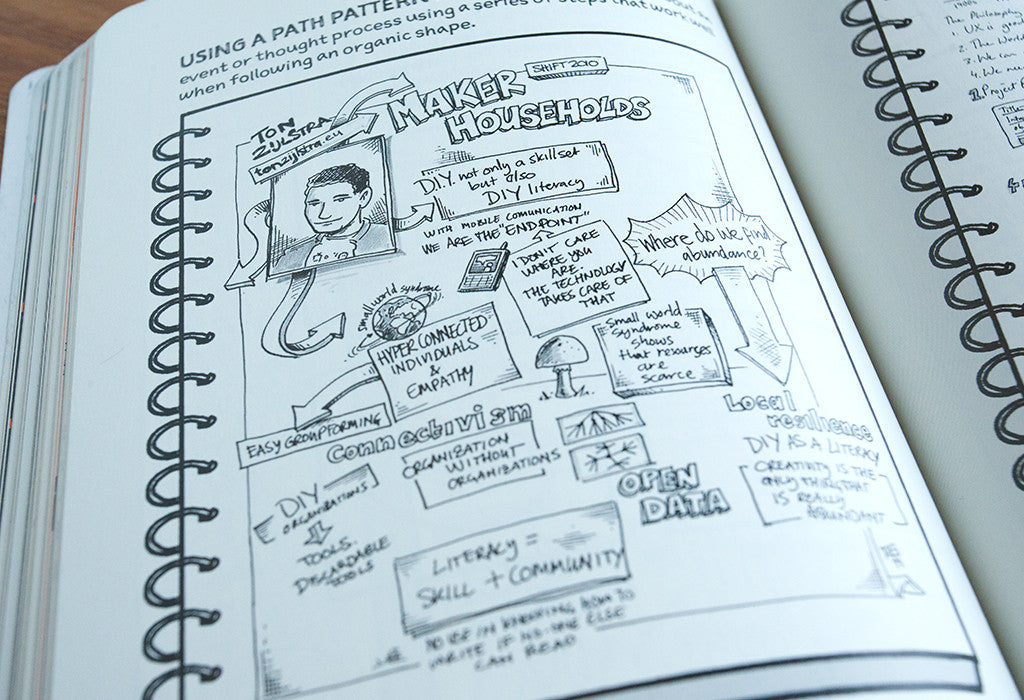 USING A PATH PATTERN
event or thought process using a series of steps that work
when following an organic shape.
SHIFT 2010
MAKER
HOUSEHOLDS
TON
ZIJLSTRA
tonzijlstra.eu
D.I.Y. not only a skillset
but also
DIY literacy
WITH MOBILE COMUNICATION
WE ARE THE "ENDPOINT"
I DON'T CARE
WHERE YOU
ARE
THE TECHNOLOGY
TAKES CARE OF
THAT
Where do we find
abundance?
small world syndrome
HYPERCONNECTED
INDIVIDUALS
&
EMPATHY
small world
syndrome
shows
that resources
are
scarce
EASY GROUPFORMING
Connectivism
ORGANIZATION
WITHOUT
ORGANIZATIONS
DIY
ORGANIZATIONS
TOOLS.
DISCARDABLE
TOOLS
OPEN
DATA
Local
resilience
DIY AS A LITERACY
CREATIVITY IS THE
ONLY THING THAT
IS REALLY
ABUNDANT
LITERACY =
SKILL + COMMUNITY
NO USE IN KNOWING HOW TO
WRITE IF NO-ONE ELSE
CAN READ
The Philosophy
1. UX is
2. The World
3. We can
4. We
Project